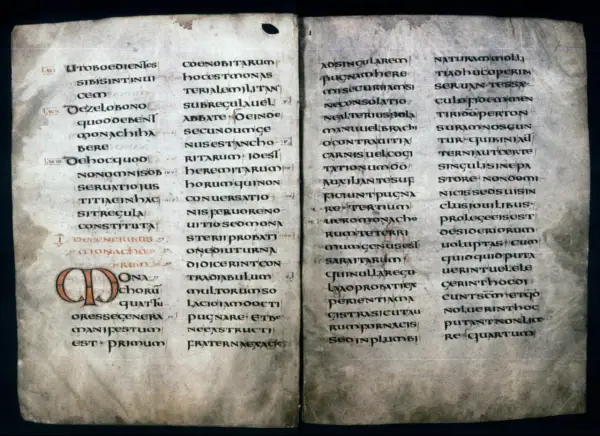 LXXI UT OBOEDIENTES
SIBI SINT INUI
CEM
LXXII DE ZELO BONO
QUOD DEBENT
MONACHI HA
BERE
LXXIII DE HOC QUOD
NON OMNIS OB
SERUATIO IUS
TITIAE IN HAC
SIT REGULA
CONSTITUTA
I DE GENERIBUS
MONACHO
RUM
MONA
CHORŪ
QUATTU
OR ESSE GENERA
MANIFESTUM
EST · PRIMUM
COENOBITARUM
HOC EST MONAS
TERIALE MILITAN
SUB REGULA UEL
ABBATE DEINDE
SECUNDUM GE
NUS EST ANCHO
RITARUM ID EST
HEREMITARUM
HORUM QUI NON
CONUERSATIO
NIS FERUORE NO
UITIO SED MONA
STERII PROBATI
ONE DIUTURNA
DIDICERINT CON
TRA DIABULUM
MULTORUM SO
LACIO IAM DOCTI
PUGNARE · ET BE
NE EXSTRUCTI
FRATERNA EX ACIE
AD SINGULAREM
PUGNAM HERE
MI SECURI IAM SI
NE CONSOLATIO
NE ALTERIUS SOLA
MANU UEL BRACHI
O CONTRA UITIA
CARNIS UEL COGI
TATIONUM DŌ
AUXILIANTE SUF
FICIUNT PUGNA
RE TERTIUM
UERO MONACHO
RUM TETERRI
MUM GENUS EST
SARABAITARUM
QUI NULLA REGU
LA ADPROBATI EX
PERIENTIA MA
GISTRA SICUT AU
RUM FORNACIS
SED IN PLUMBI
NATURAM MOLLI
TI ADHUC OPERIB
SERUANTES SAE
CULO FIDEM MEN
TIRI DŌ PER TON
SURAM NOSCUN
TUR · QUI BINI AUT
TERNI AUT CERTE
SINGULI SINE PA
STORE NON DOMI
NICIS SED SUIS IN
CLUSI OUILIBUS
PRO LEGE EIS EST
DESIDERIORUM
UOLUPTAS CUM
QUICQUID PUTA
UERINT UEL ELE
GERINT HOC DI
CUNT SC̄M ET QUOD
NOLUERINT HOC
PUTANT NON LICE
RE QUARTUM